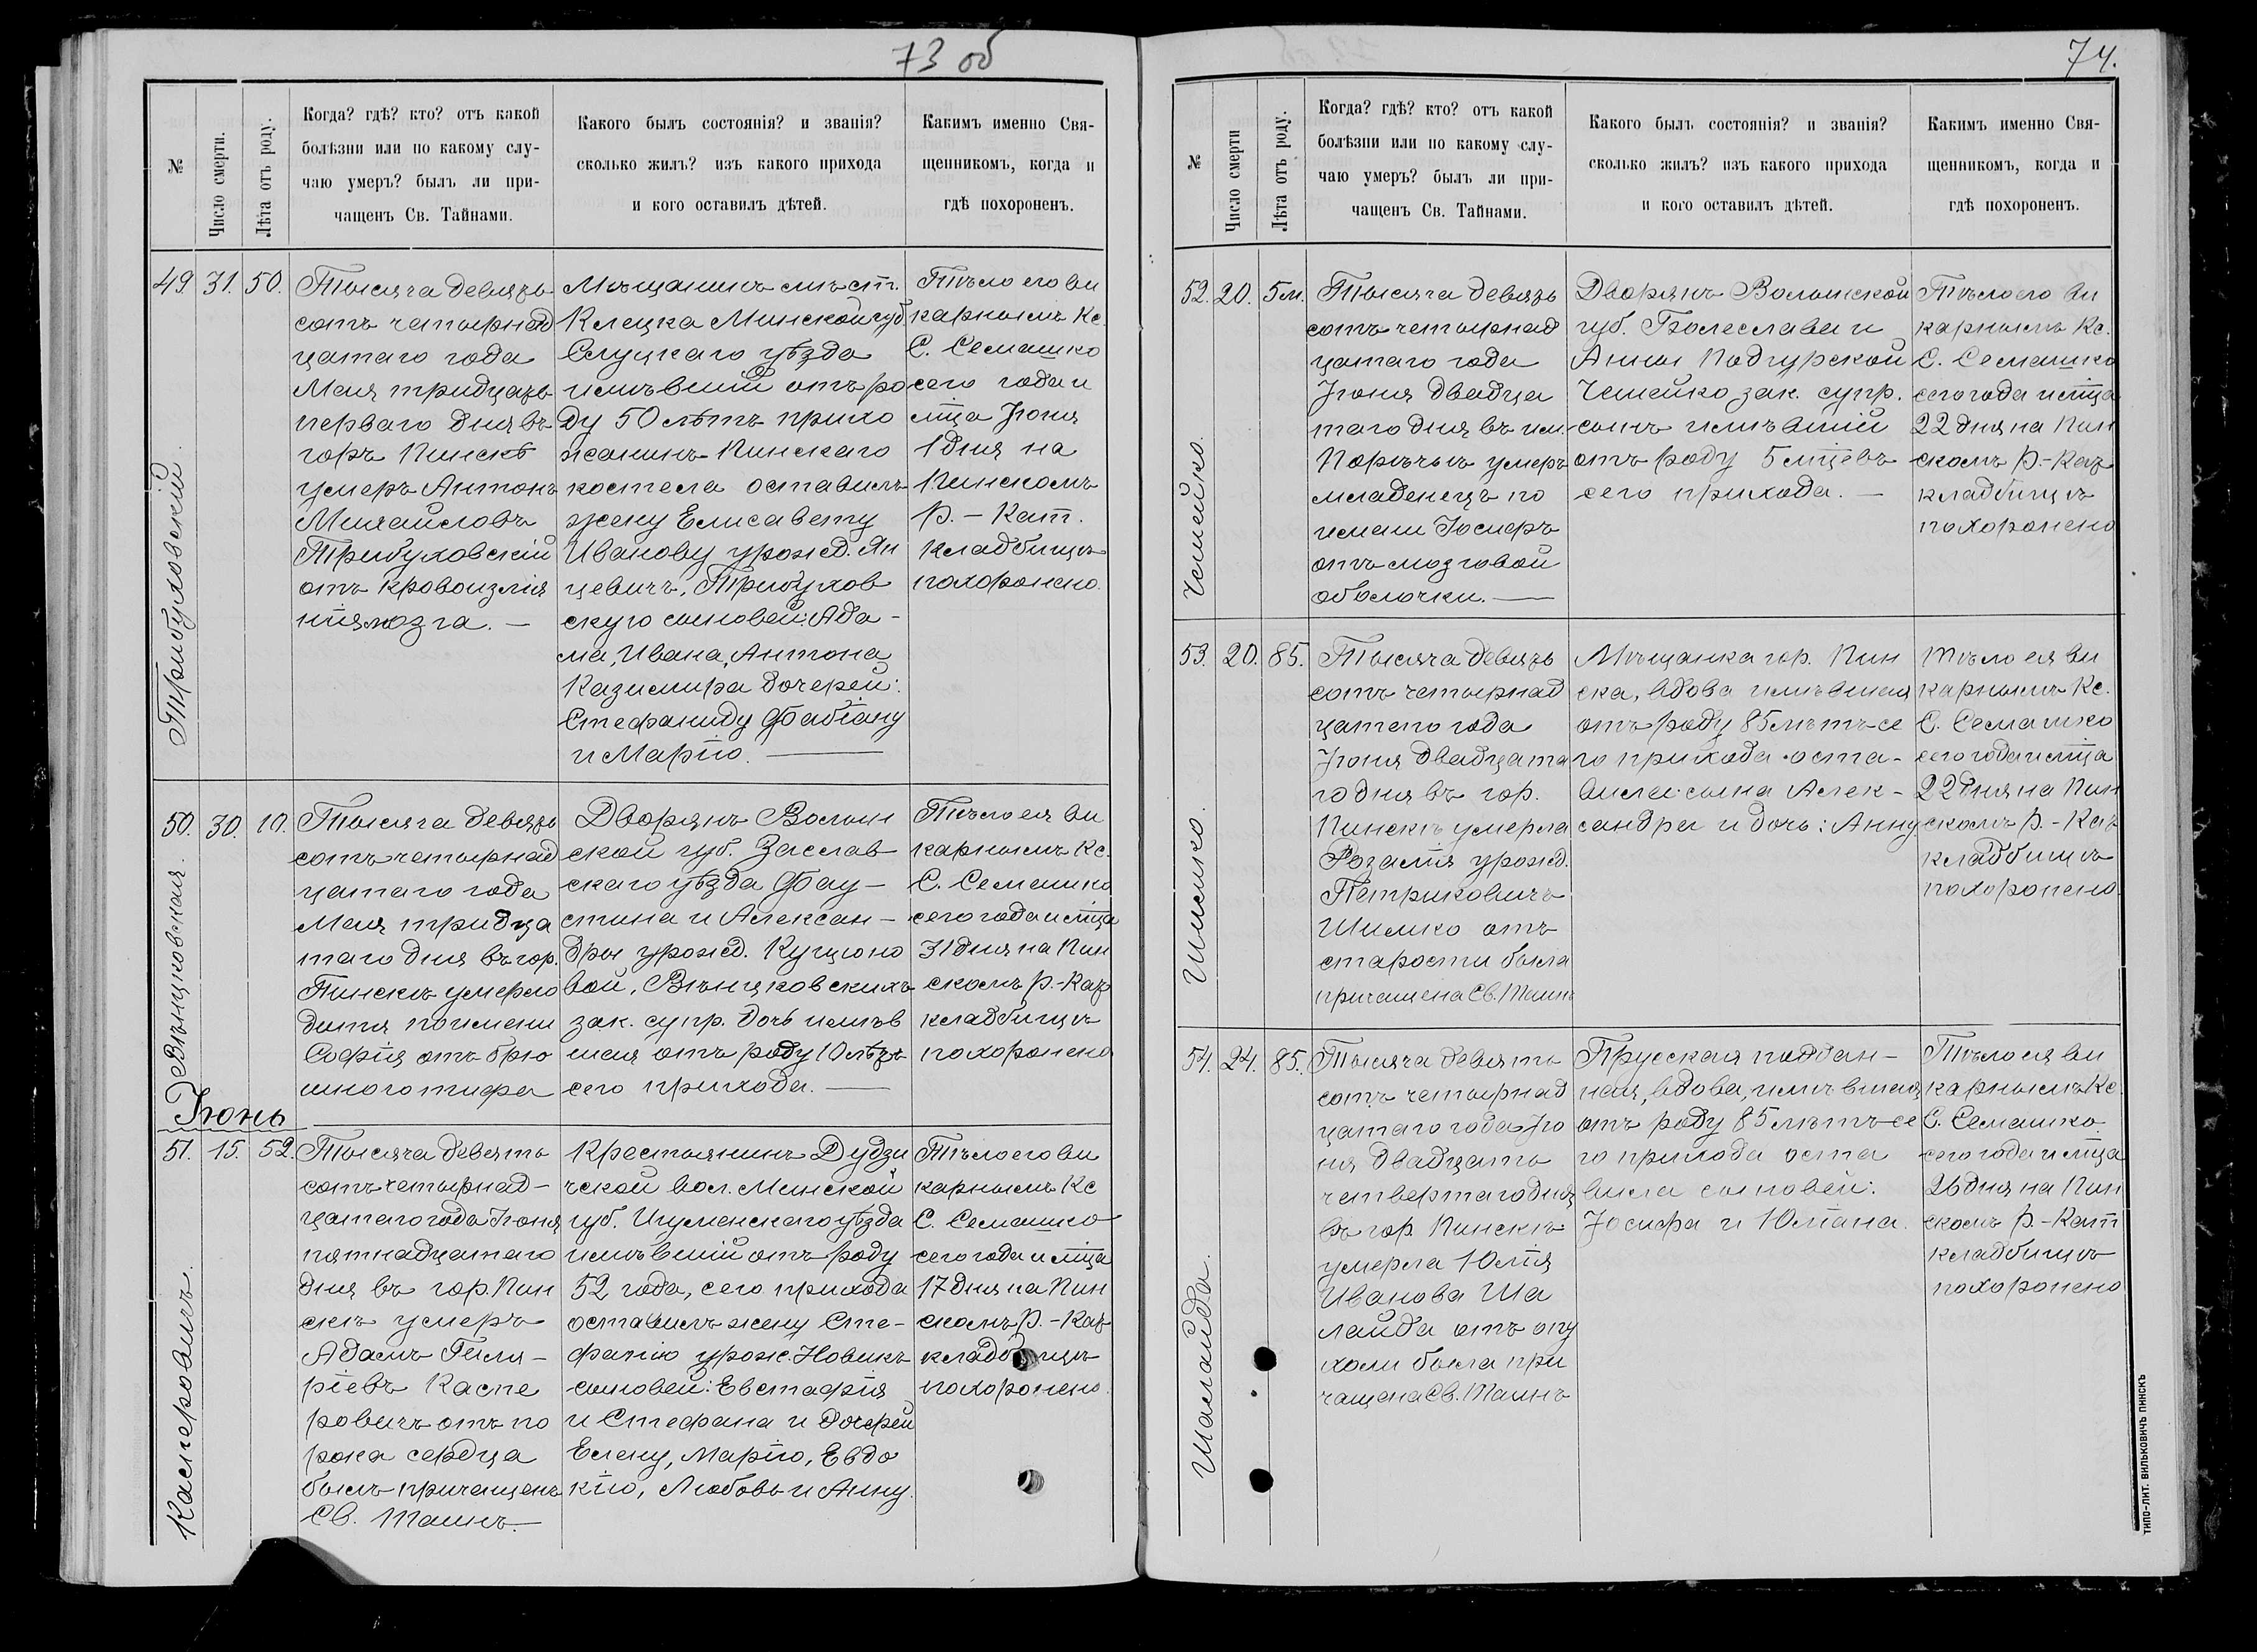 73 об
№
Число смерти.
Лѣта отъ роду.
Когда? гдѣ? кто? отъ какой
болѣзни или по какому слу-
чаю умеръ? былъ ли при-
чащенъ Св. Тайнами.
Какого былъ состоянія? и званія?
сколько жилъ? изъ какого прихода
и кого оставилъ дѣтей.
Какимъ именно Свя-
щенникомъ, когда и
гдѣ похороненъ.
Трибуховскій
49. 31. 50.
Тысяча девять
сотъ четырнад
цатаго года
Мая тридцать
перваго дня въ
горъ Пинскѣ
умеръ Антонъ
Михайловъ
Трибуховскій
отъ кровоизлія
нія мозга. —
Мѣщанинъ мѣст.
Клецка Минской губ
Слуцкаго уѣзда
имѣвшій отъ ро
ду 50 лѣтъ прихо
жанинъ Пинскаго
костела оставилъ
жену Елисавету
Иванову урожд. Ян
цевичъ, Трибухов
скую сыновей: Ада-
ма, Ивана, Антона
Казимира дочерей:
Стефаниду Фабіану
и Марію. —
Тѣло его ви
карнымъ Кс.
С. Семашко
сего года и
мца Іюня
1 дня на
Пинскомъ
Р. - Кат.
кладбищѣ
похоронено.
Вѣнцковская
50. 30. 10.
Тысяча девять
сотъ четырнад
цатаго года
Мая тридца
таго дня въ гор.
Пинскѣ умерло
дитя по имени
Софія отъ брю
шного тифа
Дворянъ Волын
ской губ. Заслав
скаго уѣзда Фау-
стина и Алексан-
дры урожд. Куцюно
вой, Вѣнцковскихъ
зак. супр. дочь имѣв
шая отъ роду 10 лѣтъ
сего прихода. —
Тѣло ея ви
карнымъ Кс.
С. Семашко
сего года и мца
31 дня на Пин
скомъ Р.-Кат
кладбищѣ
похоронено
Іюнь
Касперовичъ.
51. 15. 52.
Тысяча девять
сотъ четырнад-
цатаго года Іюня
пятнадцатаго
дня въ гор. Пин
скѣ умеръ
Адамъ Гиля-
ріевъ Каспе
ровичъ отъ по
рока сердца
былъ причащенъ
Св. Таинъ. —
Крестьянинъ Дудзи
чской вол. Минской
губ. Игуменскаго уѣзда
имѣвшій отъ роду
52 года, сего прихода
оставилъ жену Сте-
фанію урож. Новикъ
сыновей: Евстафія
и Стефана и дочерей
Елену, Марію, Евдо
кію, Любовь и Анну.
Тѣло его ви
карнымъ Кс
С. Семашко
сего года и мца
17 дня на Пин
скомъ Р. - Кат
кладбищѣ
похоронено.
74.
№
Число смерти
Лѣта отъ роду.
Когда? гдѣ? кто? отъ какой
болѣзни или по какому слу-
чаю умеръ? былъ ли при-
чащенъ Св. Тайнами.
Какого былъ состоянія? и званія?
сколько жилъ? изъ какого прихода
и кого оставилъ дѣтей.
Какимъ именно Свя-
щенникомъ, когда и
гдѣ похороненъ.
Чемейко.
52. 20. 5 м.
Тысяча девять
сотъ четырнад
цатаго года
Іюня двадца
таго дня въ им.
Порѣчьѣ умеръ
младенецъ по
имени Іосифъ
отъ мозговой
оболочки. —
Дворянъ Волынской
губ. Болеслава и
Анны Подгурской
Чемейко зак. супр.
сынъ имѣвшій
отъ роду 5 мцевъ
сего прихода. —
Тѣло его ви
карнымъ Кс.
С. Семашко
сего года и мца
22 дня на Пин
скомъ Р.-Кат
кладбищѣ
похоронено
Шишко.
53. 20. 85.
Тысяча девять
сотъ четырнад
цатого года
Іюня двадцата
го дня въ гор.
Пинскѣ умерла
Розалія урожд.
Петриковичъ
Шишко отъ
старости была
причащена Св. Таинъ
Мѣщанка гор. Пин
ска, вдова имѣвшая
отъ роду 85 лѣтъ се
го прихода оста-
вила: сына Алек-
сандра и дочь: Анну
Тѣло ея ви
карнымъ Кс.
С. Семашко
сего года и мца
22 дня на Пин
скомъ Р. - Кат
кладбищѣ
похоронено.
Шалайда.
54. 24. 85.
Тысяча девять
сотъ четырнад
цатаго года Ію
ня двадцать
четвертаго дня
въ гор. Пинскѣ
умерла Юлія
Иванова Ша
лайда отъ опу
холи была при
чащена Св. Таинъ
Прусская поддан-
ная, вдова, имѣвшая
отъ роду 85 лѣтъ се
го прихода оста
вила сыновей:
Іосифа и Юліана.
Тѣло ея ви
карнымъ Кс.
С. Семашко
сего года и мца
26 дня на Пин
скомъ Р.-Кат
кладбищѣ
похоронено
ТИПО-ЛИТ. ВИЛЬКОВИЧЪ ПИНСКЪ